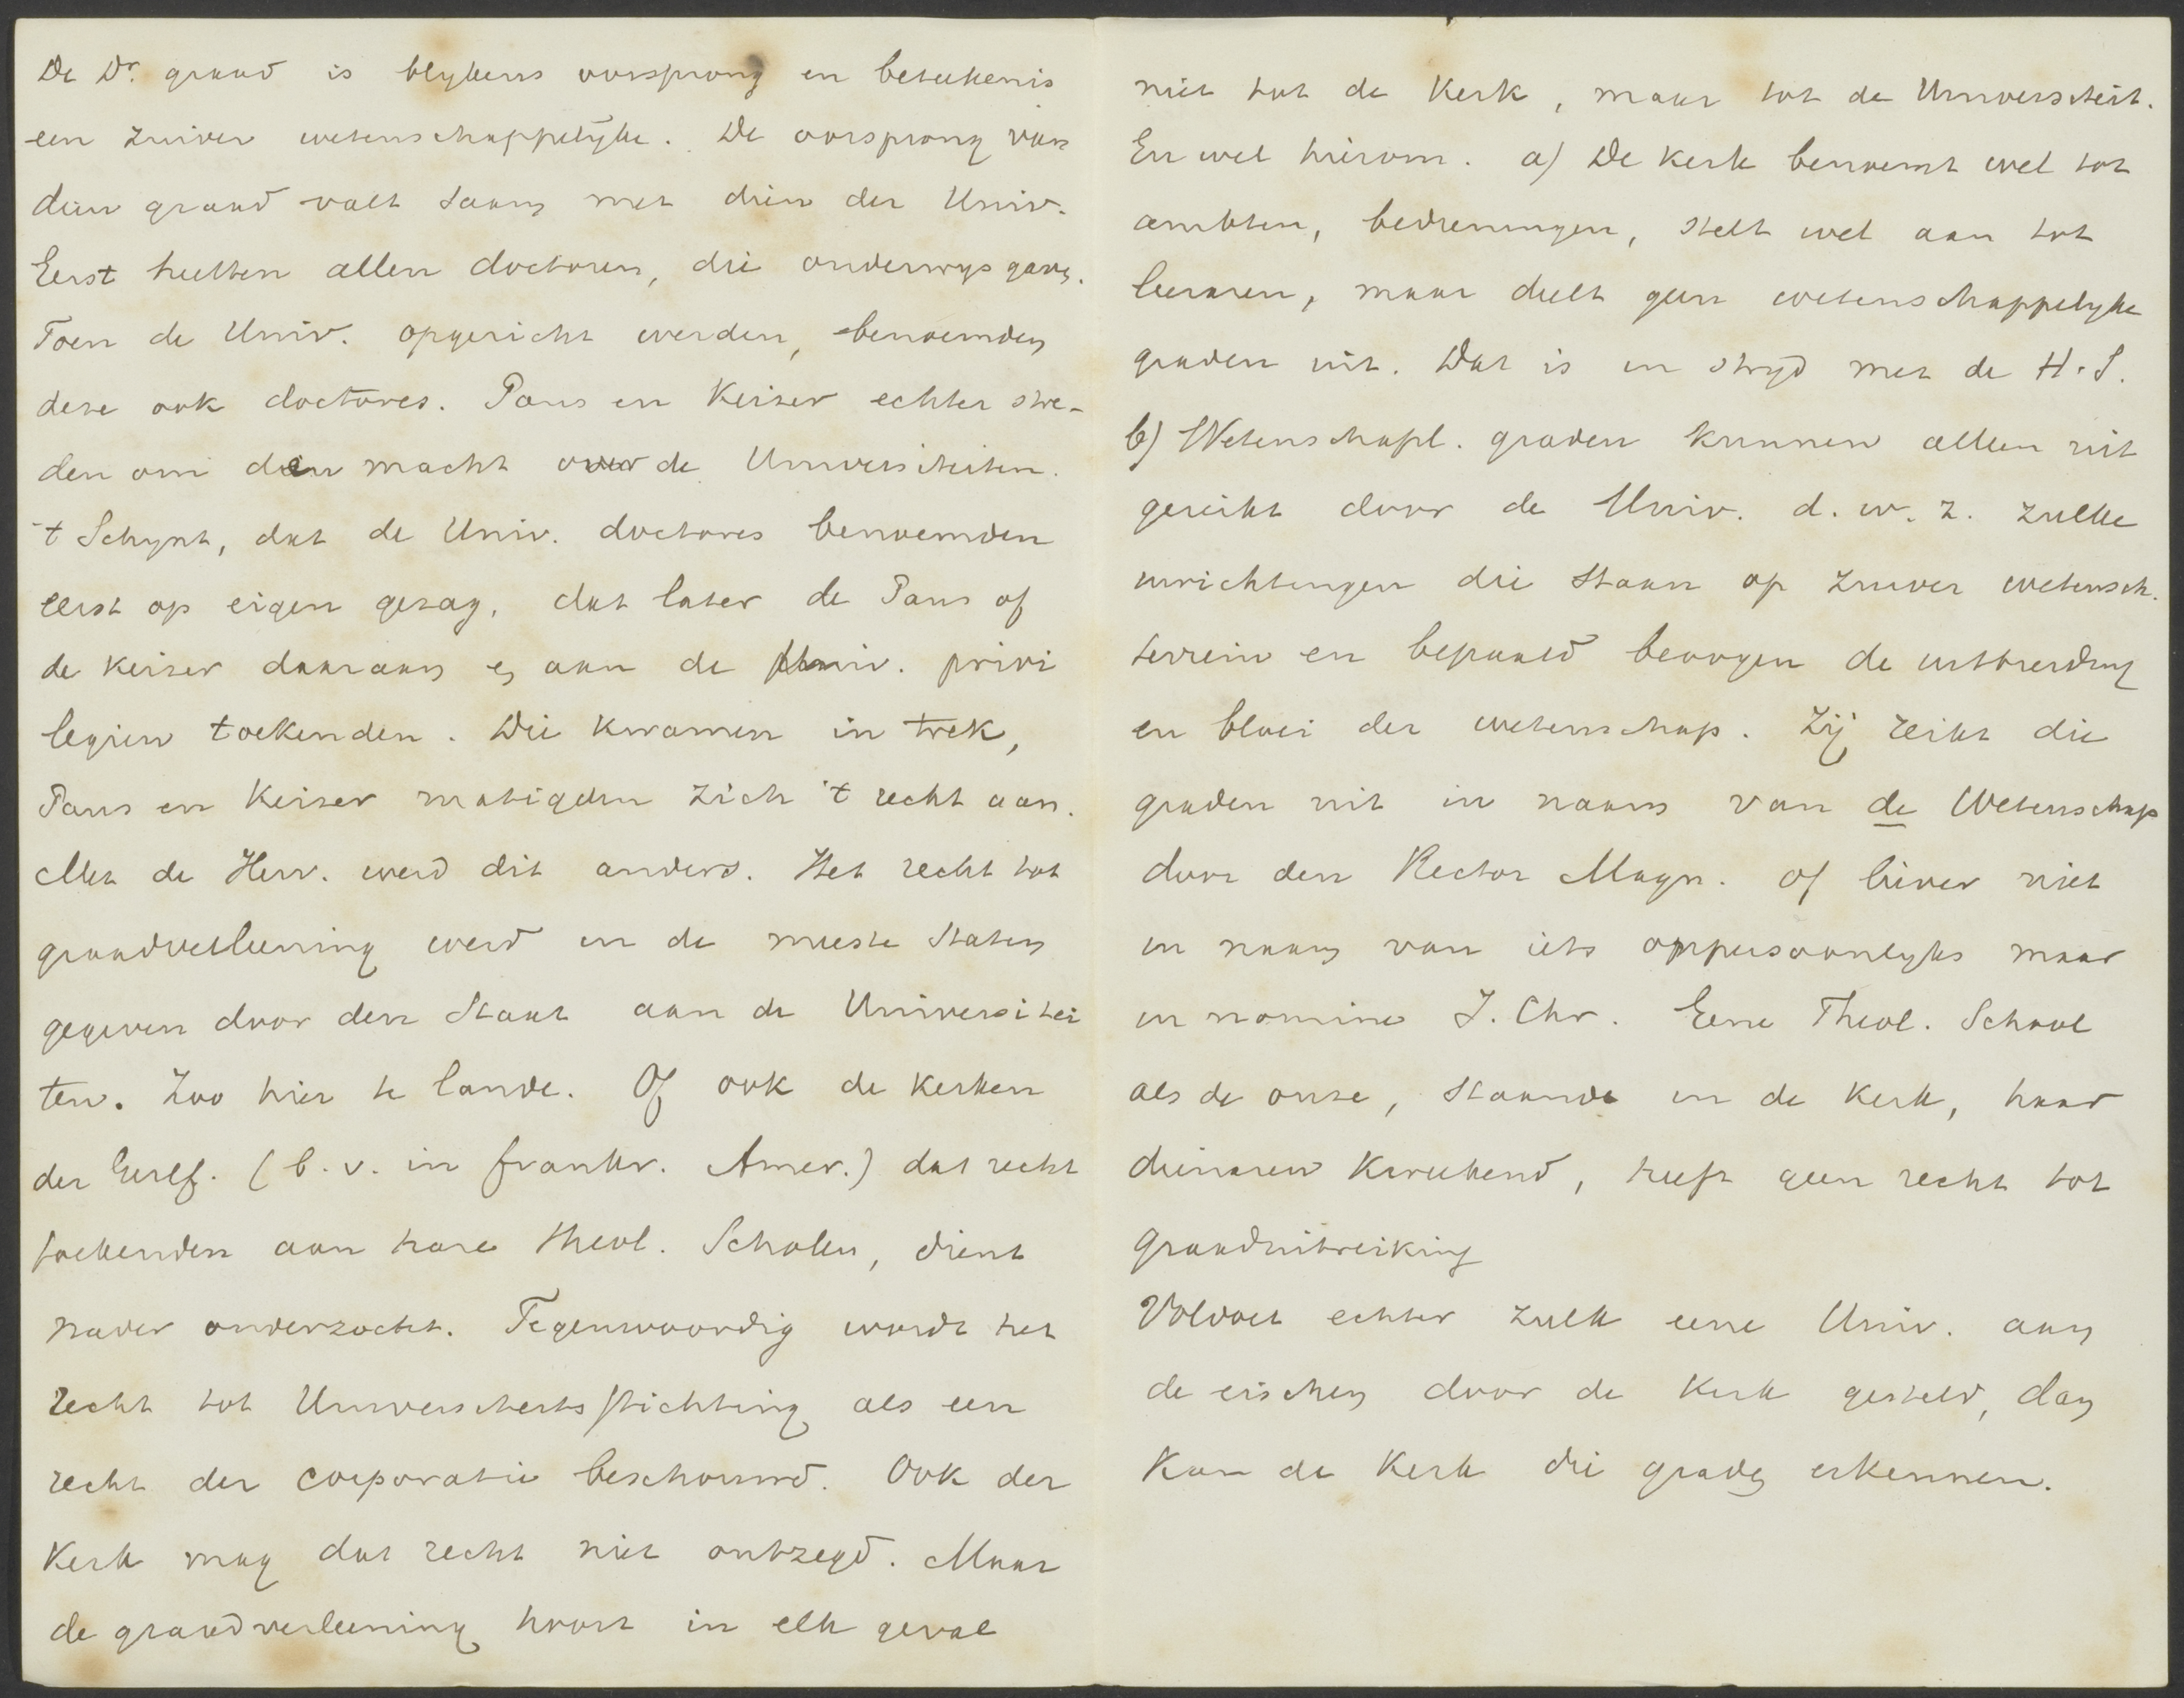 De Dr. graad is blykens oorsprong en beteekenis
een zuiver wetenschappelyke. De oorsprong van
dien graad valt saam met dien der Univ.
Eerst heetten allen doctoren, die onderwys gaven.
Toen de Univ. opgericht werden, benoemden
deze ook doctores. Paus en Keizer echter stre-
den om den macht over de Universiteiten.
't Schynt, dat de Univ. doctores benoemden
eerst op eigen gezag, dat later de Paus of
de Keizer daaraan en aan de Univ. privi
legien toekenden. Die kwamen in trek,
Paus en Keizer matigden zich 't recht aan.
Met de Herv. werd dit anders. Het recht tot
graadverleening werd in de meeste Staten
gegeven door den Staat aan de Universitei
ten. Zoo hier te lande. Of ook de kerken
der Geref. (b.v. in Frankr. Amer.) dat recht
toekenden aan hare theol. Scholen, dient
nader onderzocht. Tegenwoordig wordt het
recht tot Universiteitsstichting als een
recht der corporatie beschouwd. Ook der
Kerk mag dat recht niet ontzegd. Maar
de graadverleening hoort in elk geval
niet tot de Kerk, maar tot de Universiteit.
En wel hierom. a) De Kerk benoemt wel tot
ambten, bedieningen, stelt wel aan tot
leeraren, maar deelt geen wetenschappelyke
graden uit. Dat is in stryd met de H.S.
b) Wetenschapl. graden kunnen alleen uit
gereikt door de Univ. d.w.z. zulke
inrichtingen die staan op zuiver wetensch.
terrein en bepaald beoogen de uitbreiding
en bloei der wetenschap. Zij reikt die
graden uit in naam van de Wetenschap
door den Rector Magn. of liever niet
in naam van iets onpersoonlyks maar
in nomine J. Chr. Eene Theol. School
als de onze, staande in de kerk, haar
dienaren kweekend, heeft geen recht tot
graaduitreiking
Voldoet echter zulk eene Univ. aan
de eischen door de Kerk gesteld, dan
kan de Kerk die graden erkennen.